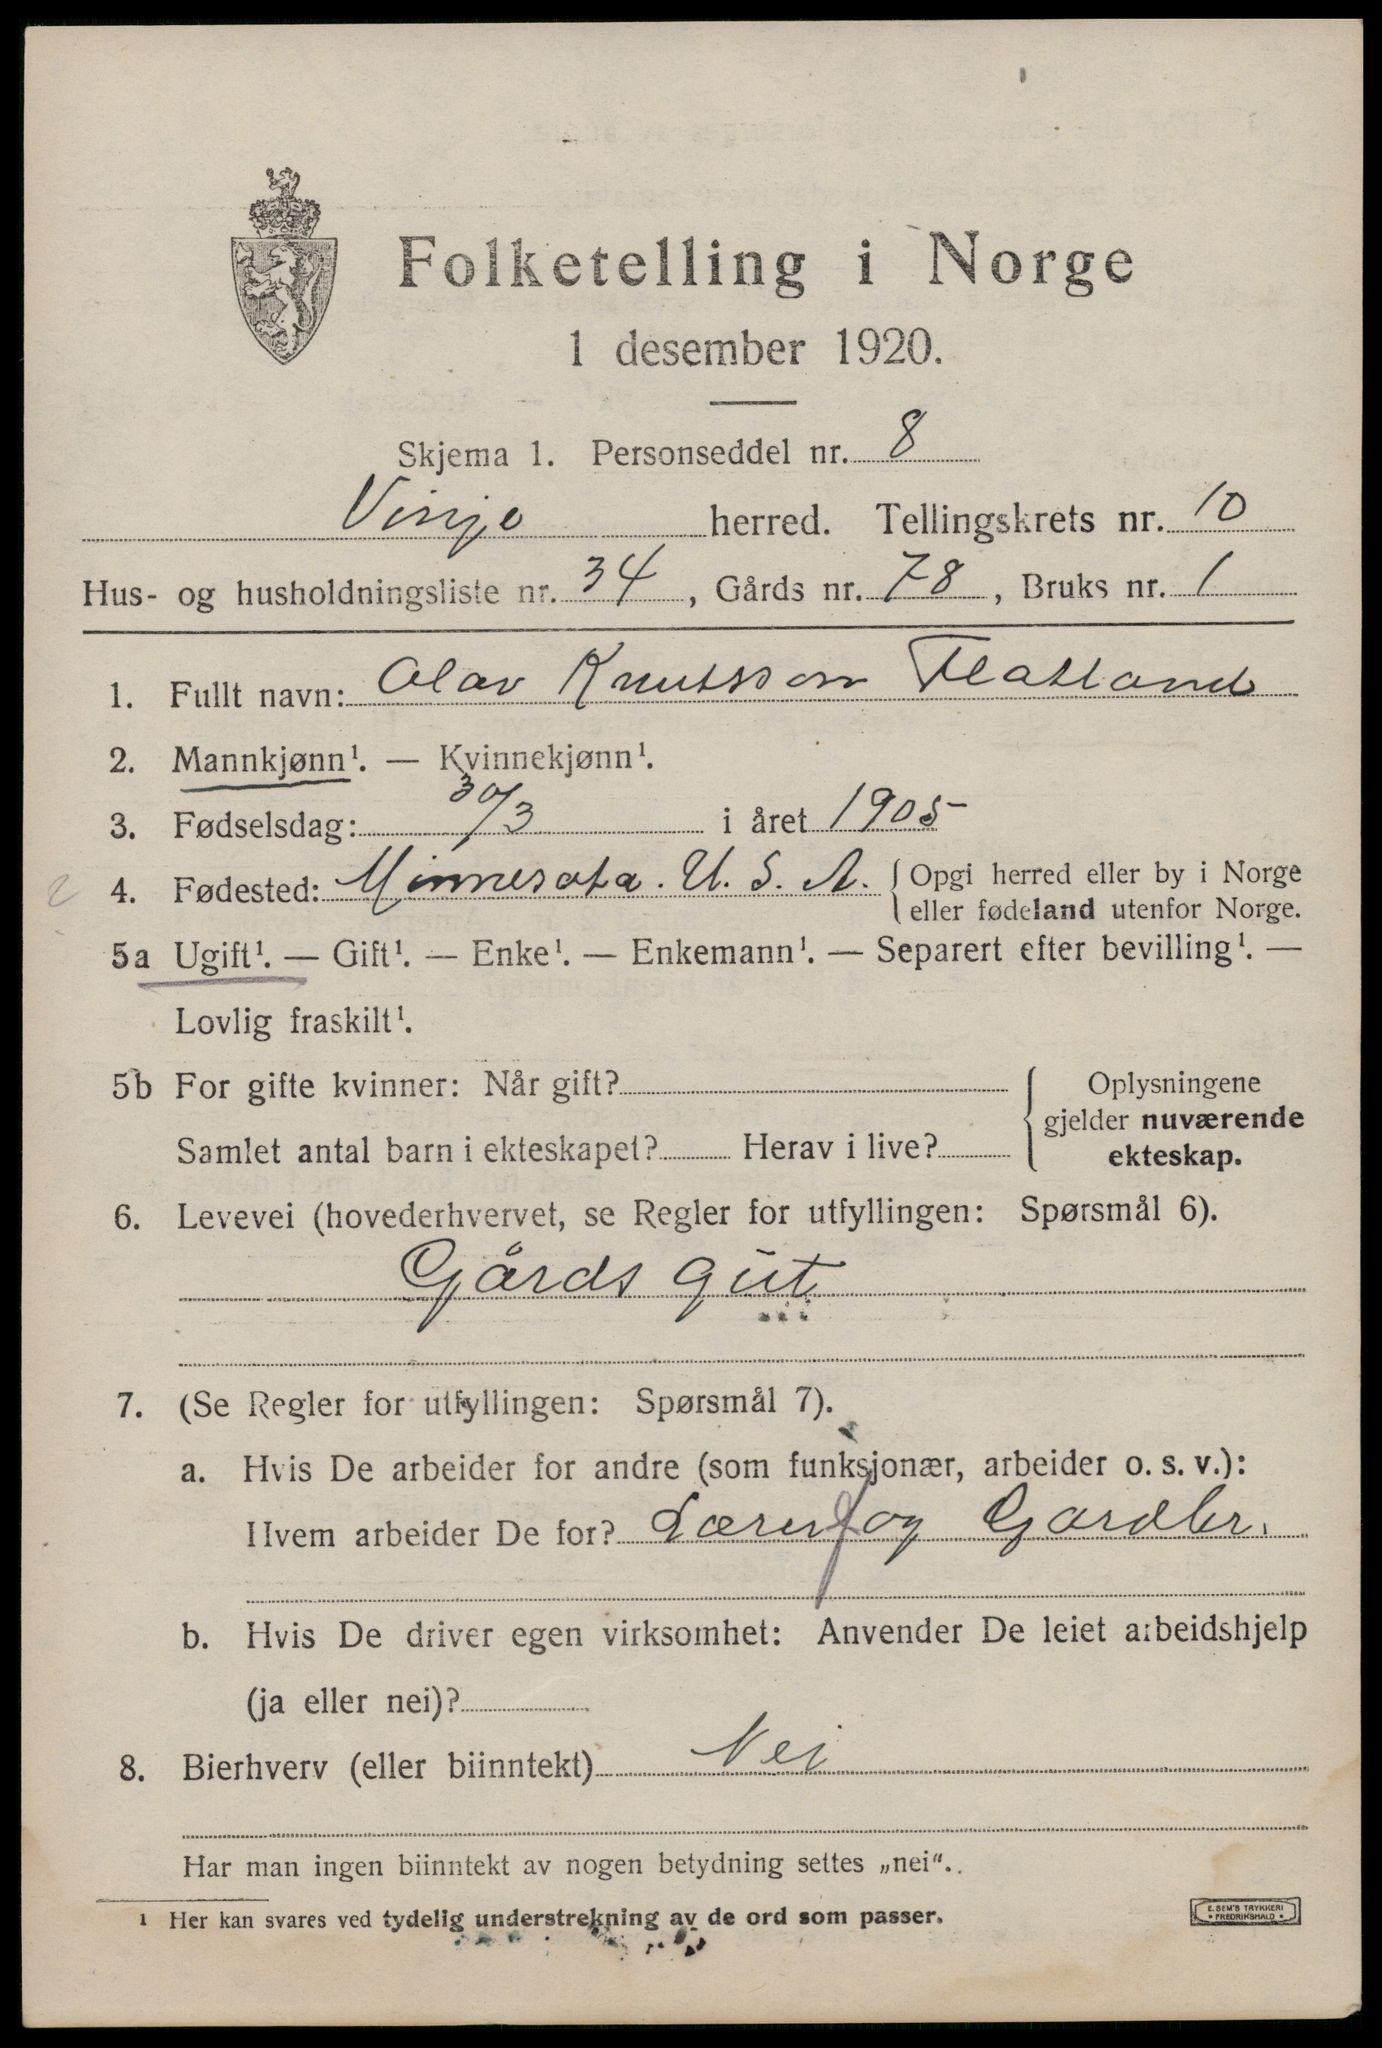 Folketelling i Norge
1 desember 1920.
Skjema 1. Personseddel nr. 8
Vinje herred. Tellingskrets nr. 10
Hus- og husholdningsliste nr. 34, Gårds nr. 78, Bruks nr. 1
1. Fullt navn: Olav Knutsson Flatland
2. Mannkjønn¹. — Kvinnekjønn¹.
3. Fødselsdag: 30/3 i året 1905
4. Fødested: Minnesota. U. S. A. Opgi herred eller by i Norge
eller fødeland utenfor Norge.
5a Ugift¹. — Gift¹. — Enke¹. — Enkemann¹. — Separert efter bevilling¹. —
Lovlig fraskilt¹.
5b For gifte kvinner: Når gift? Oplysningene
gjelder nuværende
Samlet antal barn i ekteskapet? Herav i live? ekteskap.
6. Levevei (hovederhvervet, se Regler for utfyllingen: Spørsmål 6).
Gårdsgut
7. (Se Regler for utfyllingen: Spørsmål 7).
a. Hvis De arbeider for andre (som funksjonær, arbeider o. s. v.):
Hvem arbeider De for? Lærer og Gardbr.
b. Hvis De driver egen virksomhet: Anvender De leiet arbeidshjelp
(ja eller nei)?
8. Bierhverv (eller biinntekt) Nei
Har man ingen biinntekt av nogen betydning settes „nei“.
¹ Her kan svares ved tydelig understrekning av de ord som passer.
E. SEM'S TRYKKERI
FREDRIKSHALD